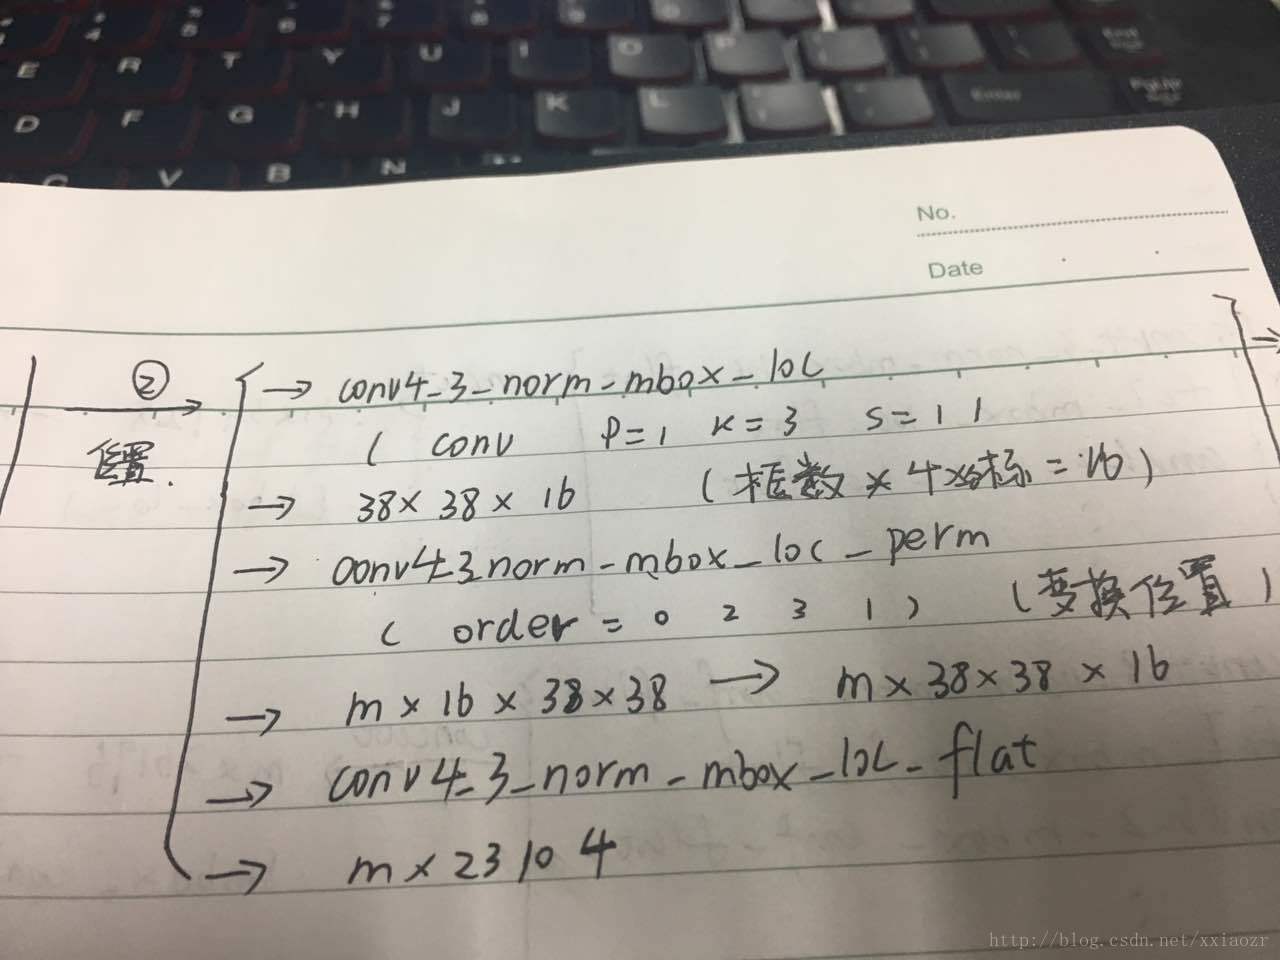 4 5 6 7 8 9
E R T Y U I O P
D F G H J K L Enter PgUp
C V B N
No.
Date
②
位置.
→ conv4_3_norm_mbox_loc
( conv P=1 K=3 S=1 )
→ 38×38×16 (框数×4坐标=16)
→ conv4_3norm_mbox_loc_perm
( order = 0 2 3 1 ) (变换位置)
→ m×16×38×38 → m×38×38×16
→ conv4_3_norm_mbox_loc_flat
→ m×23104
http://blog.csdn.net/xxiaozr